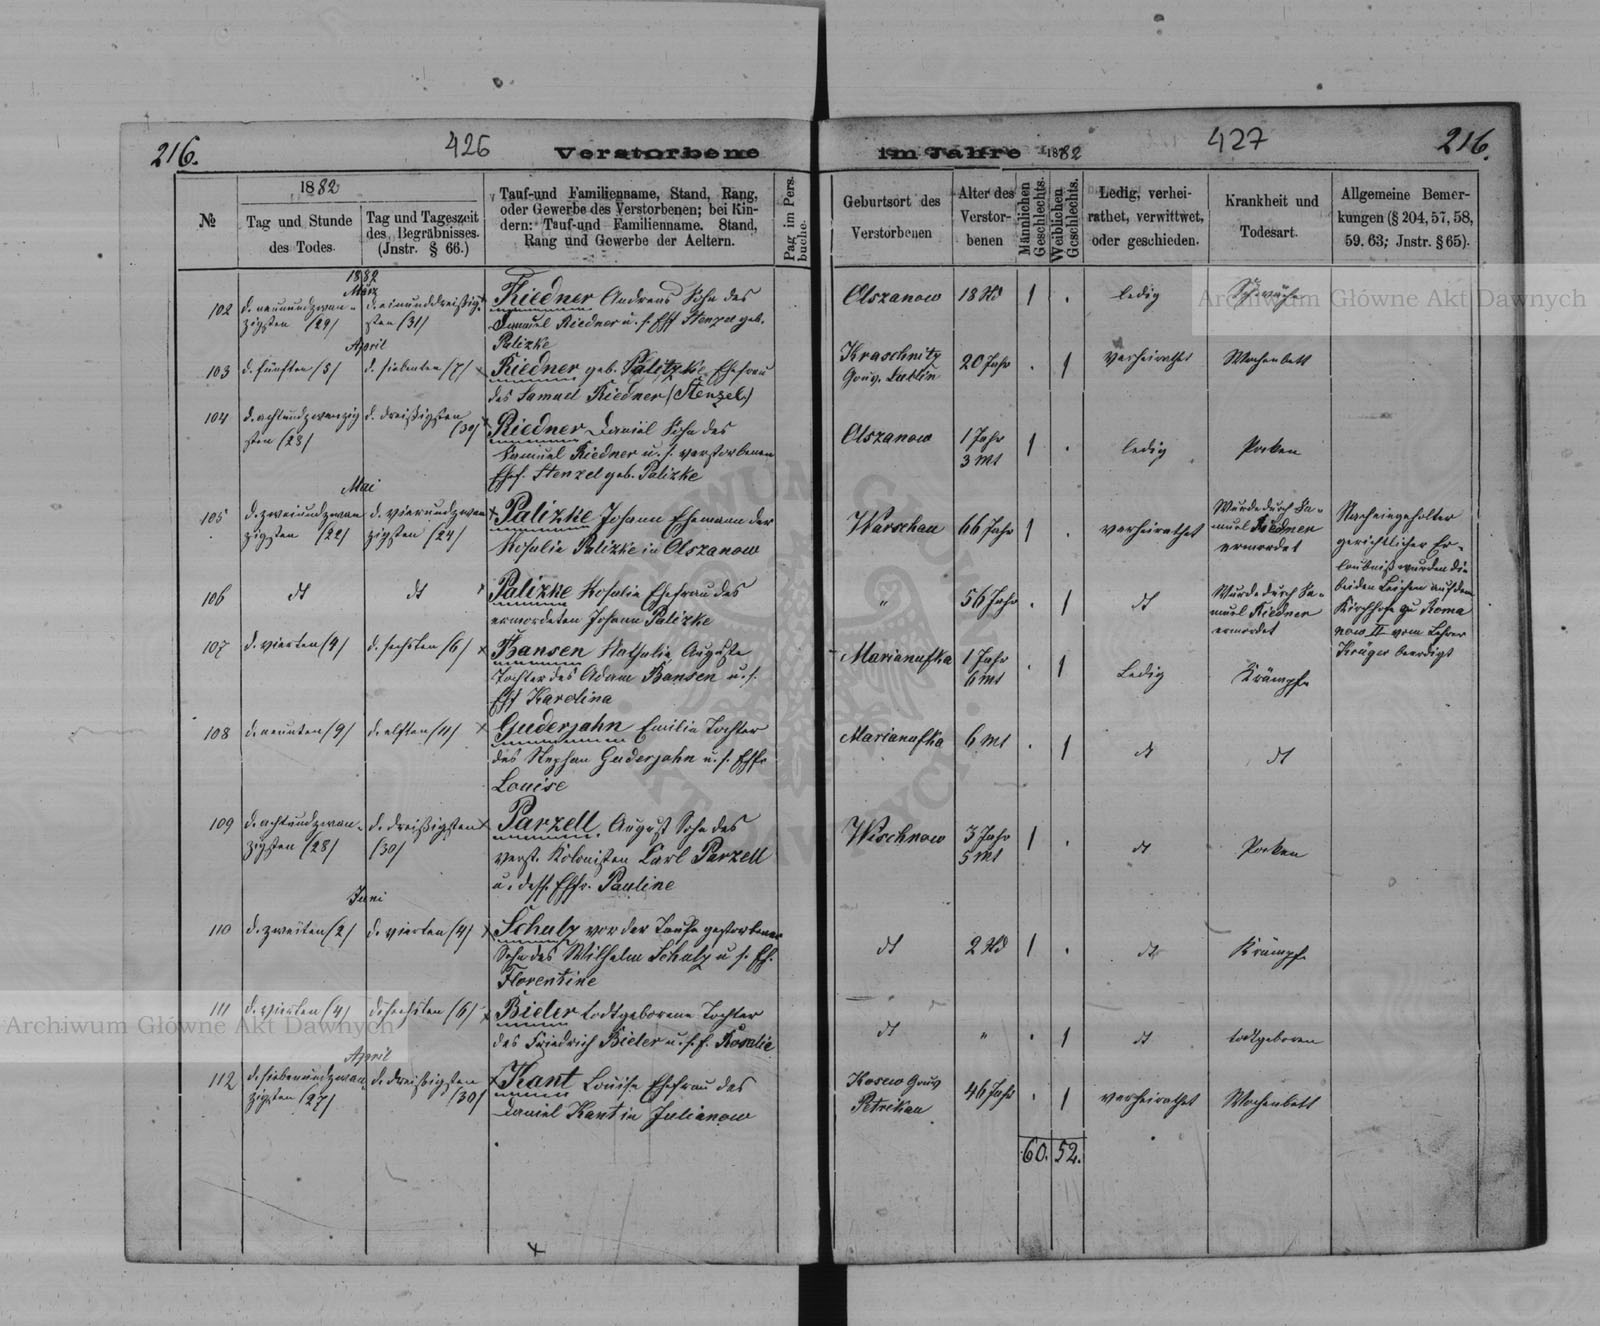 216.
426
Verstorbene
im Jahre 1882
427
216.
№
1882
Tag und Stunde
des Todes.
Tag und Tageszeit
des Begräbnisses.
(Jnstr. § 66.)
Tauf-und Familienname, Stand, Rang,
oder Gewerbe des Verstorbenen; bei Kin-
dern: Tauf-und Familienname, Stand,
Rang und Gewerbe der Aeltern.
Pag im Pers.
buche.
Geburtsort des
Verstorbenen
Alter des
Verstor-
benen
Männlichen
Geschlechts.
Weiblichen
Geschlechts.
Ledig, verhei-
rathet, verwittwet,
oder geschieden.
Krankheit und
Todesart.
Allgemeine Bemer-
kungen (§ 204, 57, 58,
59. 63; Jnstr. § 65).
1882
März
102
d. neunundzwan-
zigsten /29/
d. einunddreißig-
sten /31/
Riedner Andreas Sohn des
Samuel Riedner u. s. Eff Stenzel geb.
Palizke
Olszanow
18
1
ledig
April
103
d. fünften /5/
d. siebenten /7/
Riedner geb. Palitzke Ehefrau
des Samuel Riedner (Stenzel)
Kraschnitz
Gouv. Lublin
20 Jahr
1
verheirathet
Wochenbett
104
d. achtundzwanzig
sten /28/
d. dreißigsten
/30/
Riedner Daniel Sohn des
Samuel Riedner u. s. verstorbenen
Ehef. Stenzel geb. Palizke
Olszanow
1 Jahr
3 Mt
1
ledig
Pocken
Mai
105
d. zweiundzwan
zigsten /22/
d. vierundzwan
zigsten /24/
Palizke Johann Ehemann der
Rosalie Palizke in Olszanow
Warschau
66 Jahr
1
verheirathet
Wurde durch Sa-
muel Riedner
ermordet
Nach eingeholter
gerichtlicher Er-
laubniß wurden die
beiden Leichen auf dem
Kirchhofe zu Roma
now II vom Lehrer
Krüger beerdigt
106
dt
dt
Palizke Rosalie Ehefrau des
ermordeten Johann Palizke
"
56 Jahr
1
dt
Wurde durch Sa-
muel Riedner
ermordet
107
d. vierten /4/
d. sechsten /6/
Bansen Nathalie Auguste
Tochter des Adam Bansen u. s.
Eff Karolina
Marianufka
1 Jahr
6 Mt
1
Ledig
Krämpfe
108
d. neunten /9/
d. elften /11/
Guderjahn Emilie Tochter
des Stephan Guderjahn u. s. Ehfr
Louise
Marianufka
6 Mt
1
dt
dt
109
d. achtundzwan-
zigsten /28/
d. dreißigsten
/30/
Parzell, August Sohn des
verst. Kolonisten Carl Parzell
u. dess. Ehfr. Pauline
Wischnow
3 Jahr
5 Mt
1
dt
Pocken
Juni
110
d. zweiten /2/
d. vierten /4/
Schulz vor der Taufe gestorbener
Sohn des Wilhelm Schulz u. s. Eh.
Florentine
dt
2
1
dt
Krämpfe
111
d. vierten /4/
d. sechsten /6/
Bieler todtgeborene Tochter
des Friedrich Bieler u. s. f. Rosalie
dt
"
1
dt
todtgeboren
April
112
d. siebenundzwan
zigsten /27/
d. dreißigsten
/30/
Kant Louise Ehefrau des
Daniel Kant in Julianow
Kosew Gouv
Petrikau
46 Jahr
1
verheirathet
Wochenbett
60. 52.
Archiwum Główne Akt Dawnych
Archiwum Główne Akt Dawnych